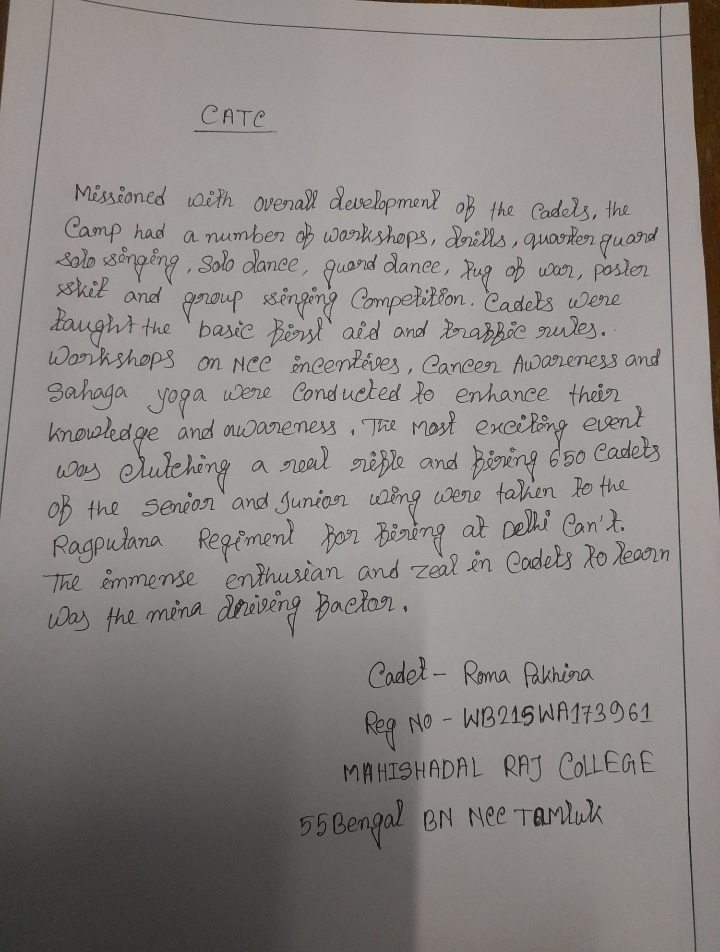 CATC
Missioned with overall development of the Cadets, the
Camp had a number of workshops, drills, quarter guard
solo singing, solo dance, guard dance, tug of war, poster
skit and group singing Competition. Cadets were
taught the basic first aid and traffic rules.
Workshops on NCC incentives, Cancer Awareness and
Sahaga yoga were Conducted to enhance their
knowledge and awareness. The most exciting event
was clutching a real rifle and firing 650 Cadets
of the senior and Junior wing were taken to the
Ragputana Regiment for firing at Delhi Can't.
The immense enthusian and zeal in Cadets to learn
was the mina driving factor.
Cadet - Roma Pakhira
Reg No - WB21SWA173961
MAHISHADAL RAJ COLLEGE
55 Bengal BN NCC Tamluk